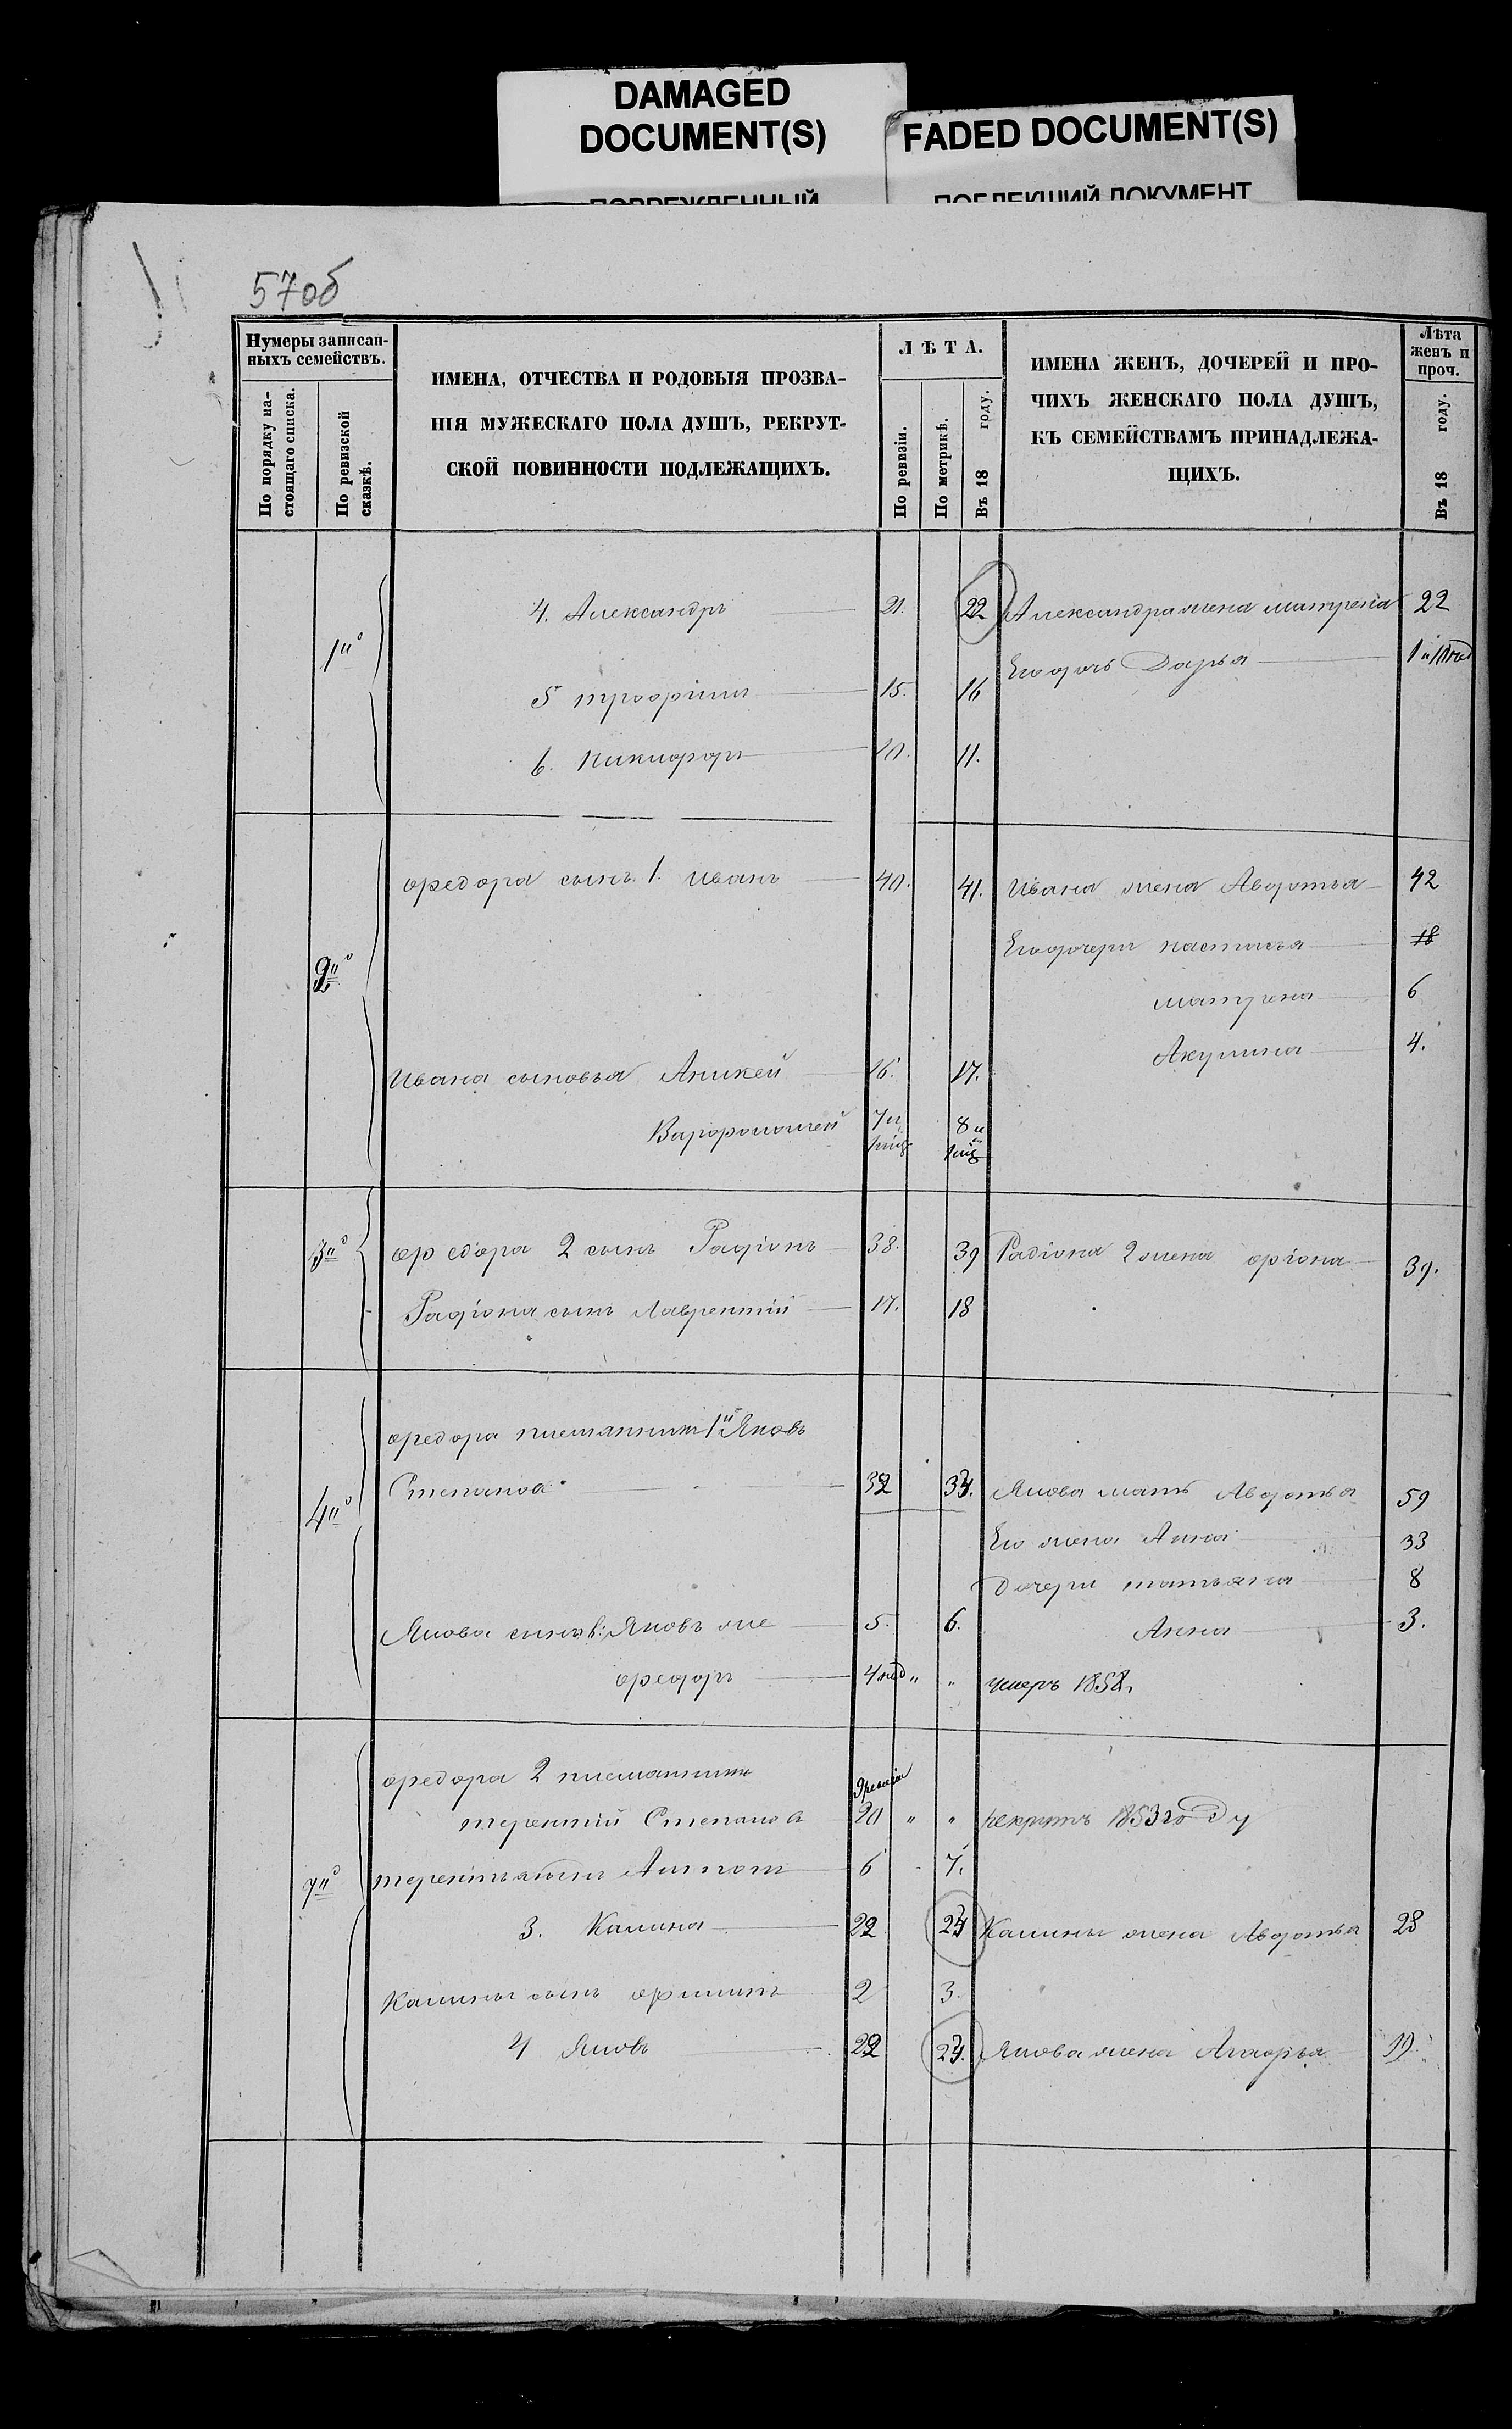 DAMAGED
DOCUMENT(S)
FADED DOCUMENT(S)
ПОВРЕЖДЕННЫЙ
ПОБЛЕКШИЙ ДОКУМЕНТ
57об
Нумеры записан-
ныхъ семействъ.
По порядку на-
стоящаго списка.
По ревизской
сказкѣ.
ИМЕНА, ОТЧЕСТВА И РОДОВЫЯ ПРОЗВА-
НІЯ МУЖЕСКАГО ПОЛА ДУШЪ, РЕКРУТ-
СКОЙ ПОВИННОСТИ ПОДЛЕЖАЩИХЪ.
ЛѢТА.
По ревизіи.
По метрикѣ.
Въ 18 году.
ИМЕНА ЖЕНЪ, ДОЧЕРЕЙ И ПРО-
ЧИХЪ ЖЕНСКАГО ПОЛА ДУШЪ,
КЪ СЕМЕЙСТВАМЪ ПРИНАДЛЕЖА-
ЩИХЪ.
Лѣта
женъ и
проч.
Въ 18 году.
1й
4. Александръ 21. 22 Александра жена матрена 22
Его дочь Дарья
5 трофимъ 15. 16
6. никифоръ 10. 11.
2й
федора сынъ 1. иванъ 40. 41. ивана жена Авдотья 42
Его дочери настасья 18
матрена 6
Акулина 4.
ивана сыновья Аникей 16. 17.
Варфоломей 7и 8и
3й
федора 2 сынъ Радіонъ 38. 39 Радіона 2 жена фіона 39.
Радіона сынъ Лаврентій 17. 18
4й
федора племянникъ 1й Яковъ
Степановъ 32 33. Якова мать Авдотья 59
Его жена Анна 33
Дочери татьяна 8
Якова сынъ Яковъ же 5. 6. Анна 3.
федоръ 4 нед " " умеръ 1858.
федора 2 племянникъ
терентій Степановъ 20 " " рекрутъ 1853 году
терентья сынъ Антонъ 6 7.
3. Калина 22 23 Калины жена Авдотья 23
Калины сынъ филипъ 2 3.
4 Яковъ 22 23. Якова жена Агафья 19.